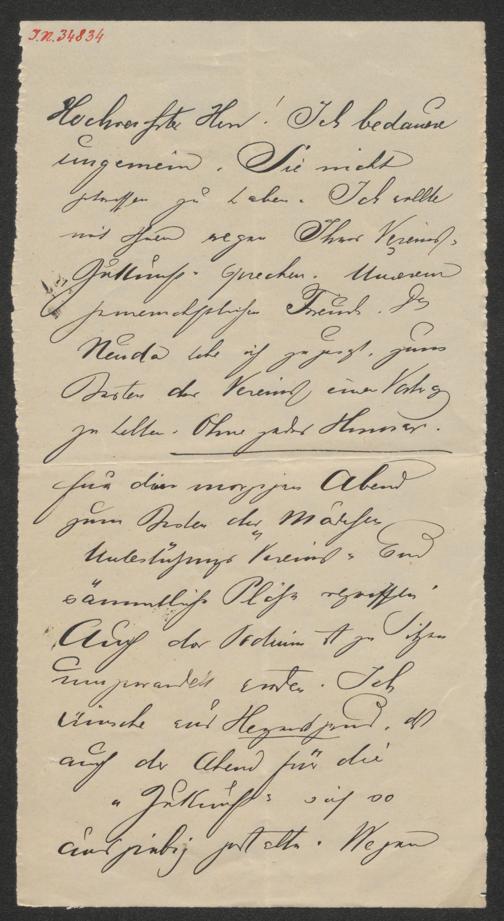 I.N. 34834
Hochverehrter Herr! Ich bedauere
ungemein, Sie nicht
getroffen zu haben. Ich wollte
mit Ihnen wegen Ihres Vereins
"Zukunft" sprechen. Unserem
gemeinschaftlichen Freund Dr
Neuda habe ich zugesagt, zum
Besten des Vereins einen Vortrag
zu halten. Ohne jedes Honorar.
Für den morgigen Abend
zum Besten des Mädchen
Unterstützungs Vereins" sind
sämmtliche Plätze vergriffen!
Auch das Podium ist zu Sitzen
umgewandelt worden. Ich
wünsche und
auch der Abend für die
"Zukunft" sich so
ausgiebig gestalte. Wegen